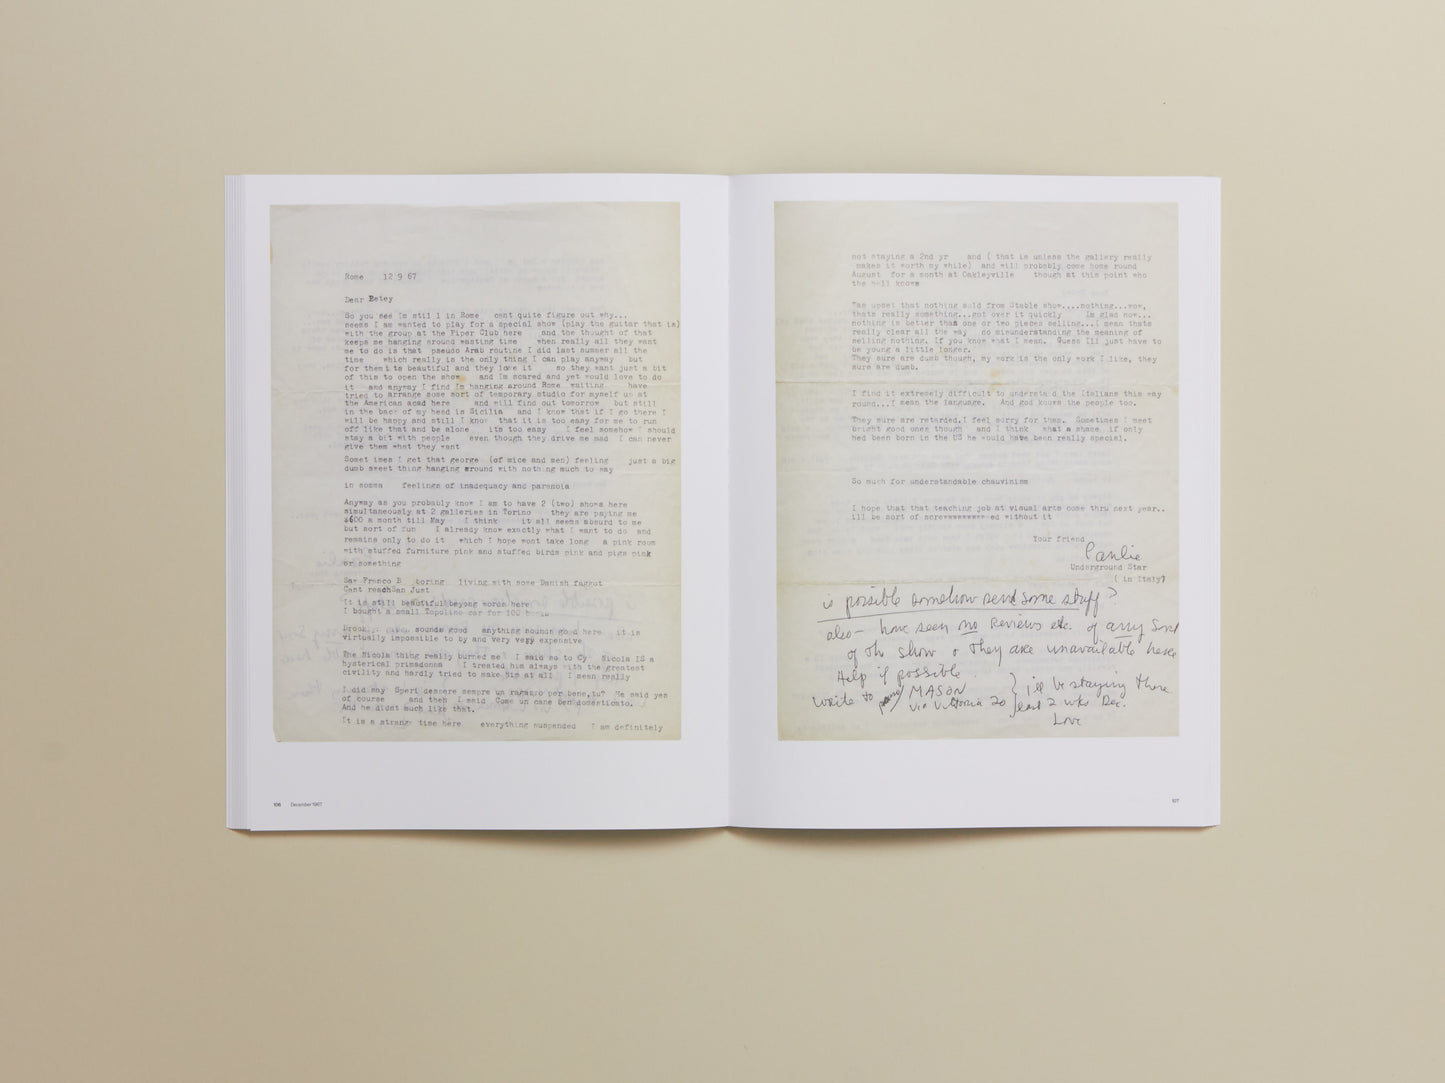 Rome 12 9 67
Dear Betey
So you see Im stil 1 in Rome cant quite figure out why...
seems I am wanted to play for a special show (play the guitar that is)
with the group at the Piper Club here and the thought of that
keeps me hanging around wasting time when really all they want
me to do is that pseudo Arab routine I did last summer all the
time which really is the only thing I can play anyway but
for them its beautiful and they love it so they want just a bit
of this to open the show and Im scared and yet would love to do
it and anyway I find Im hanging around Rome waiting have
tried to arrange some sort of temporary studio for myself up at
the American acad here and will find out tomorrow but still
in the back of my head is Sicilia and I know that if I go there I
will be happy and still I know that it is too easy for me to run
off like that and be alone its too easy I feel somehow I should
stay a bit with people even though they drive me mad I can never
give them what they want
Somet imes I get that george (of mice and men) feeling just a big
dumb sweet thing hanging around with nothing much to say
in somma feelings of inadequacy and paranoia
Anyway as you probably know I am to have 2 (two) shows here
simultaneously at 2 galleries in Torino they are paying me
$600 a month till May I think it all seems absurd to me
but sort of fun I already know exactly what I want to do and
remains only to do it which I hope wont take long a pink room
with stuffed furniture pink and stuffed birds pink and pigs pink
or something
San Franco B boring living with some Danish faggut
Cant reachSan Just
It is still beautiful beyong words here
I bought a small Topolino car for 100
sounds good anything sounds good here it is
virtually impossible to by and very very expensive
The Nicola thing really burned me I said so to Cy Nicola IS a
hysterical primadonna I treated him always with the greatest
civility and hardly tried to make him at all I mean really
I did say Speri dessere sempre un ragazzo per bene,tu? He said yes
of course and then I said Come un cane ben domesticato.
And he didnt much like that.
It is a strange time here everything suspended I am definitely
106 December 1967
not staying a 2nd yr and ( that is unless the gallery really
makes it worth my while) and will probably come home round
August for a month at Oakleyville though at this point who
the hell knows
Was upset that nothing sold from Stable show....nothing...wow,
thats really something...got over it quickly Im glad now...
nothing is better than one or two pieces selling...I mean thats
really clear all the way no misunderstanding the meaning of
selling nothing. If you know what I mean. Guess Ill just have to
be young a little longer.
They sure are dumb though, my work is the only work I like, they
sure are dumb.
I find it extremely difficult to understand the Italians this way
round...I mean the language. And god knows the people too.
They sure are retarded.I feel sorry for them. Sometimes I meet
bright good ones though and I think what a shame if only
hed been born in the US he would have been really special.
So much for understandable chauvinism
I hope that that teaching job at visual arts come thru next year..
ill be sort of ed without it
Your friend
Paulie
Underground Star
( in Italy)
is possible somehow send some stuff?
also - have seen no reviews etc. of any sort
of the show & they are unavailable here
Help if possible.
write to MASON
via Vittoria 20
i'll be staying there
least 2 wks Dec.
Love
107